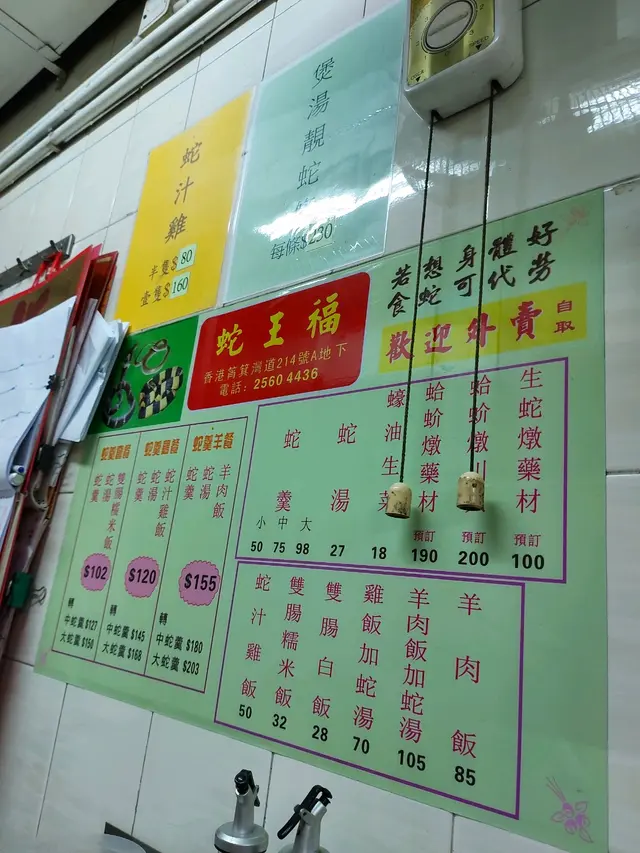 蛇汁雞
半隻$80
壹隻$160
煲湯靚蛇
每條$230
蛇王福
香港筲箕灣道214號A地下
電話：2560 4436
好勞
體代
身可
想蛇
若食
歡迎外賣 自取
生蛇燉藥材 預訂 100
蛤蚧燉川 預訂 200
蛤蚧燉藥材 預訂 190
蠔油生菜 18
蛇湯 27
蛇羹 小 50 中 75 大 98
羊肉飯 85
羊肉飯加蛇湯 105
雞飯加蛇湯 70
雙腸白飯 28
雙腸糯米飯 32
蛇汁雞飯 50
蛇羹羊餐
羊肉飯
蛇湯
蛇羹
$155
轉
中蛇羹 $180
大蛇羹 $203
蛇羹雞餐
蛇汁雞飯
蛇湯
蛇羹
$120
轉
中蛇羹 $145
大蛇羹 $168
雙腸糯米飯
蛇湯
蛇羹
$102
轉
中蛇羹 $127
大蛇羹 $150